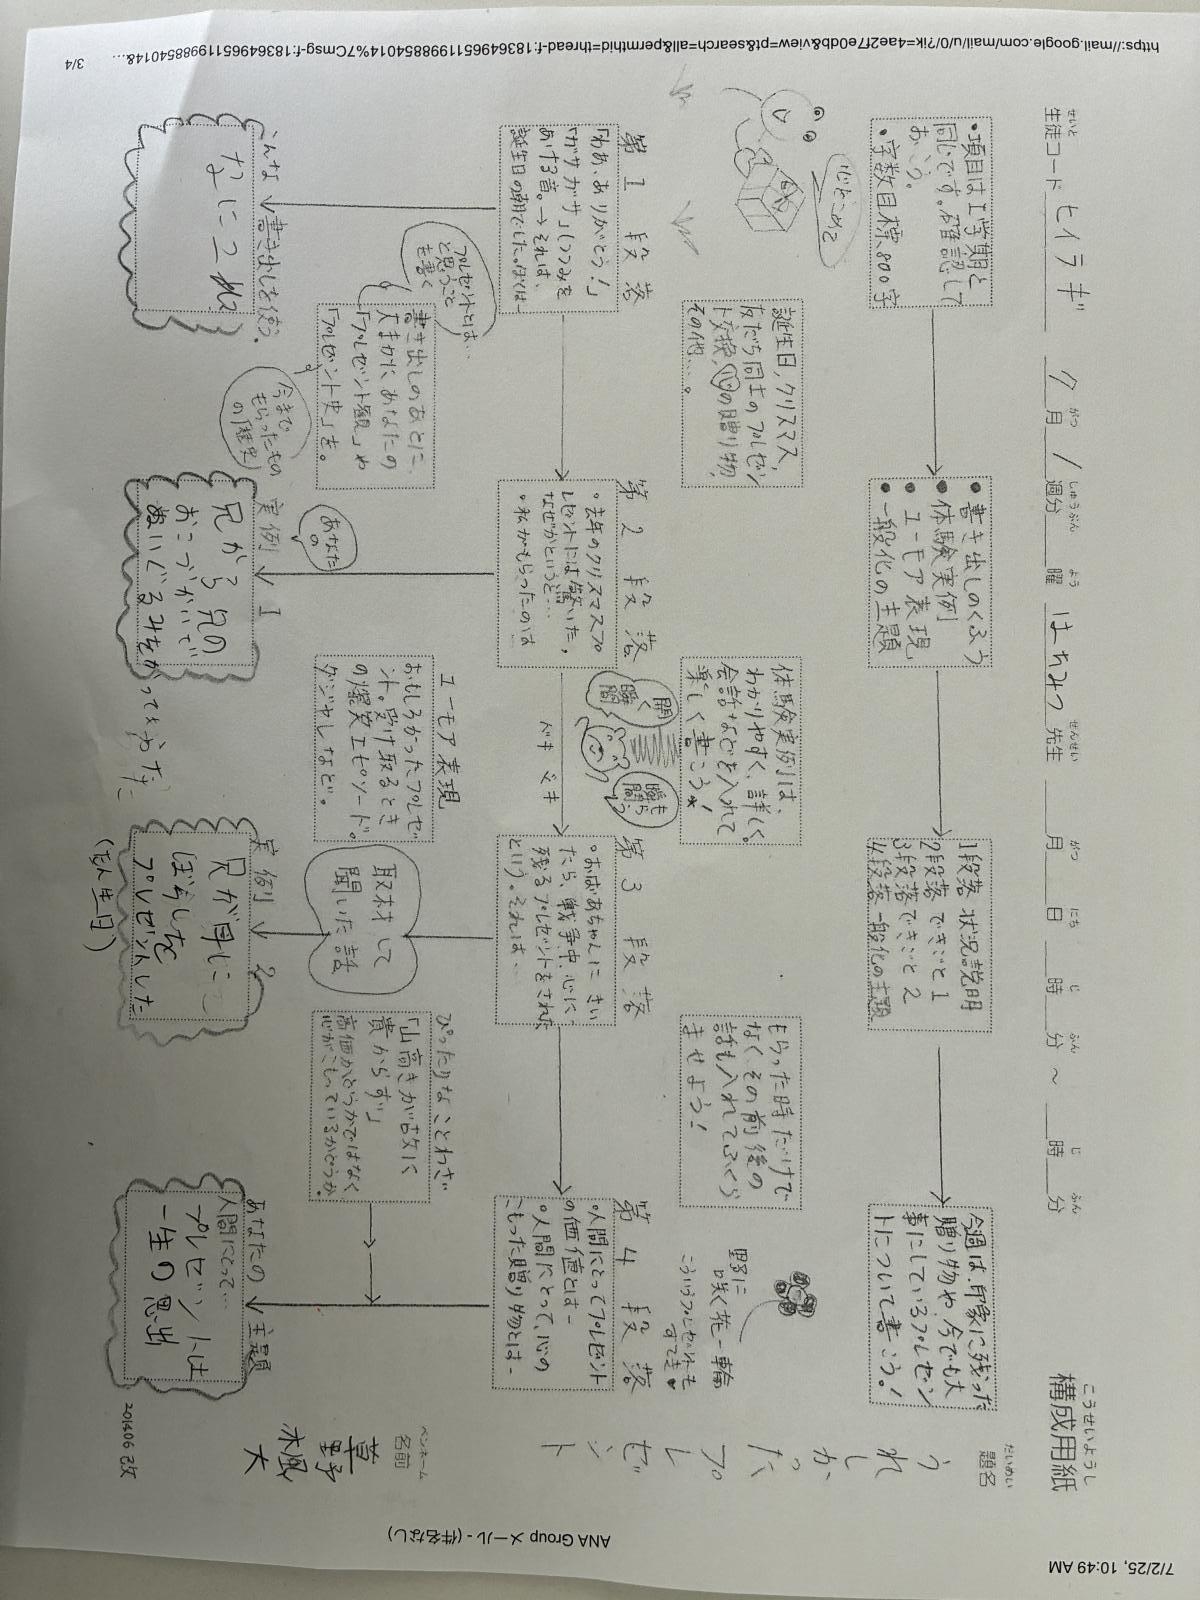 7/2/25, 10:49 AM
ANA Group メール - (件名なし)
こうせいようし
構成用紙
せいと
生徒コード ヒイラギ ク月 1 週分 曜 はちみつ 先生 月 日 時 分 ～ 時 分
だいめい
題名
うれしかったプレゼント
ペンネーム
名前
今週は、印象に残った
贈り物や、今でも大
事にしているプレゼン
トについて書こう！
1段落 状況説明
2段落 できごと1
3段落 できごと2
4段落 一般化の主題
・書き出しのくふう
・体験実例
・ユーモア表現
・一般化の主題
・項目は1学期と
同じです。確認して
おこう。
・字数目標、800字
野に
咲く花一輪
こういうプレゼントも
すてき♥
もらった時だけで
なく、その前後の
話も入れてふくら
ませよう！
体験実例は、
わかりやすく、詳しく。
会話などを入れて
楽しく書こう！
開く
瞬間
ドキ ドキ
誕生日、クリスマス、
友だち同士のプレゼン
ト交換、心の贈り物、
その他…。
心をこめて
第1段落
「わあ、ありがとう！」
「ガサガサ」(つつみを
あける音。→それは、
誕生日の朝でした。ぼくは－
第2段落
・去年のクリスマスプ
レゼントには驚いた。
なぜかというと…
・私がもらったのは
第3段落
・おばあちゃんにきい
たら、戦争中、心に
残るプレゼントをされた
という。それは…
第4段落
・人間にとってプレゼント
の価値とは－
・人間にとって、心の
こもった贈り物とは－
プレゼントとは…
と思うこと
を書く
書き出しのあとに、
大まかにあなたの
「プレゼント観」や
「プレゼント史」を。
今まで
もらったもの
の「歴史」
ユーモア表現
おもしろかったプレゼ
ント。受け取るとき
の爆笑エピソード。
ダジャレなど。
取材して
聞いた話
ぴったりなことわざ
「山高きが故に
貴からず」
高価かどうかではなく
心がこもっているかどうか。
こんな書き出しを使う。
あなたの
実例1
兄から兄の
おこづかいで
ぬいぐるみをかってもらった
実例2
兄が母に
ぼうしを
プレゼントした
(たん生日)
あなたの主題
人間にとって…
プレゼントは
一生の思出
201406改
https://mail.google.com/mail/u/0/?ik=4ae2f7e0db&view=pt&search=all&permthid=thread-f:1836496511998854014%7Cmsg-f:1836496511998854014&…
3/4